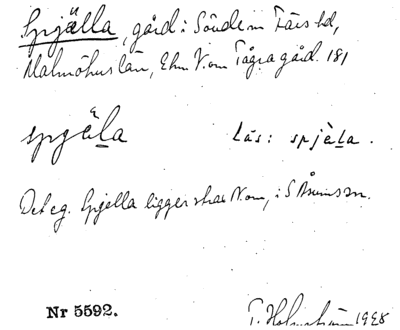 Spjälla, gård i Södra Färs hd,
Malmöhus län, 2 km V om Tågra gård. 181
spgäla Läs: spjäla.
Det eg. Spjella ligger strax V om, i S Åsum sn.
Nr 5592. T. Holmström 1928